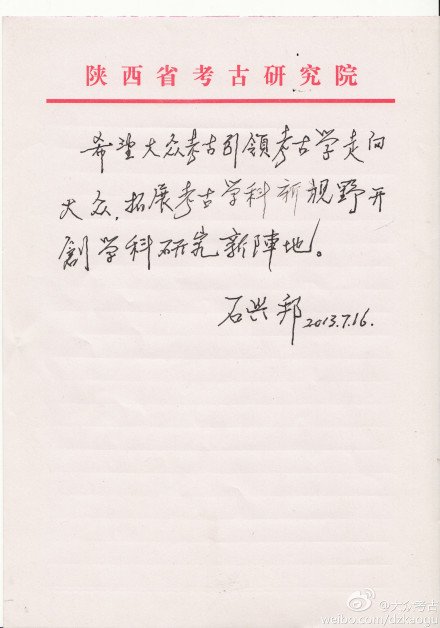 陕西省考古研究院
希望大众考古引领考古学走向
大众，拓展考古学科新视野开
創学科研究新陣地。
石兴邦 2013.7.16.
@大众考古
weibo.com/dzkaogu